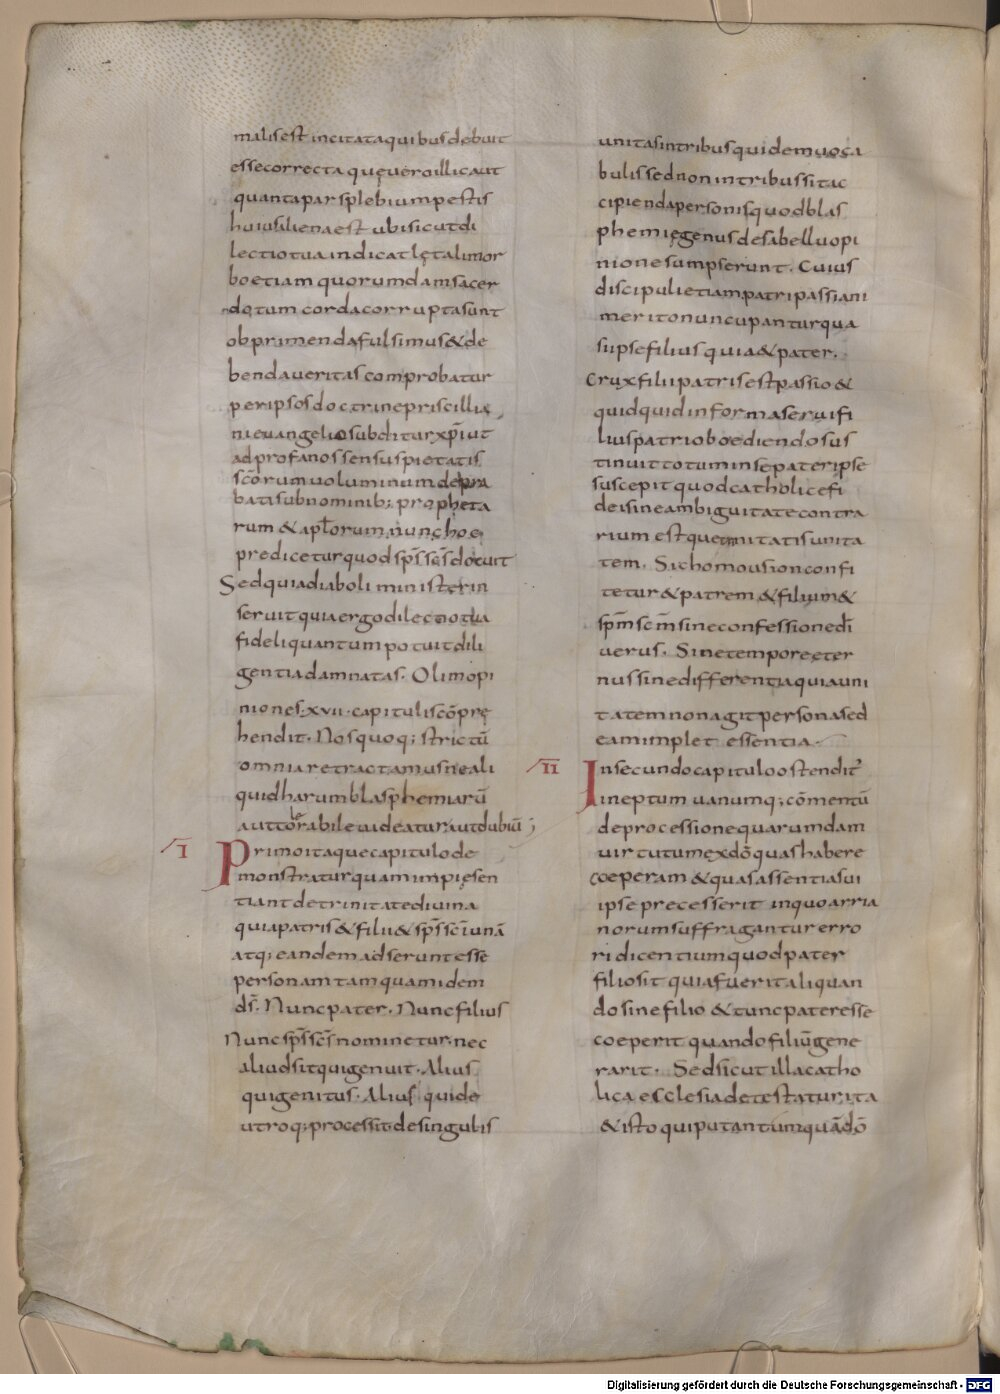 malis est incitata quibus debuit
esse correcta que uero illic aut
quanta pars plebium pestis
huius aliena est ubi sicut di
lectio tua indicat lętali mor
bo etiam quorumdam sacer
dotum corda corrupta sunt
obprimenda fulsimus & de
benda ueritas comprobatur
per ipsos doctrine priscillia
ni euangelio subditur xp̄i ut
ad profanos sensus pietatis
sc̄orum uoluminum depra
batis sub nominib; propheta
rum & apl̄orum nunc hoc
predicetur quod sp̄s sc̄s docuit
Sed quia diaboli minister in
seruit quia ergo dilectio tua
fideli quantum potuit dili
gentia damnatas. Olim opi
niones .xvii. capitulis cōpre
hendit. Nos quoq; strictū
omnia retractamus ne ali
quid harum blasphemiarū
aut tolerabile uideatur aut dubiū;
I Primo itaque capitulo de
monstratur quam impię sen
tiant de trinitate diuina
qui a patris & filii & sp̄s sc̄i unā
atq; eandem adserunt esse
personam tamquam idem
ds̄. Nunc pater. Nunc filius
Nunc sp̄s sc̄s nominetur. nec
alius sit qui genuit. Alius
qui genitus. Alius qui de
utroq; processit de singulis
unitas in tribus quidem uoca
bulis sed non in tribus sit ac
cipienda personis quod blas
phemię genus de sabelli opi
nione sumpserunt. Cuius
discipuli etiam patripassiani
merito nuncupantur qua
si ipse filius qui a & pater.
Crux filii patris est passio &
quidquid in forma serui fi
lius patri oboediendo sus
tinuit totum in se pater ipse
suscepit quod catholice fi
dei sine ambiguitate contra
rium est que unitatis unita
tem. Sic homousion confi
tetur & patrem & filium &
sp̄m sc̄m sine confessione di
uersus. Sine tempore eter
nus sine differentia qui auni
tatem non agit persona sed
eam implet essentia.
II In secundo capitulo ostendit̄
ineptum uanumq; cōmentū
de processione quarumdam
uirtutum ex dō quas habere
coeperam & quas assentia sui
ipse precesserit in quo arria
norum suffragantur erro
ri dicentium quod pater
filio sit qui a fuerit aliquan
do sine filio & tunc pater esse
coeperit quando filiū gene
rarit. Sed sicut illa catho
lica esclesia detestatur ita
& isto qui putant umquā dō
Digitalisierung gefördert durch die Deutsche Forschungsgemeinschaft - DFG